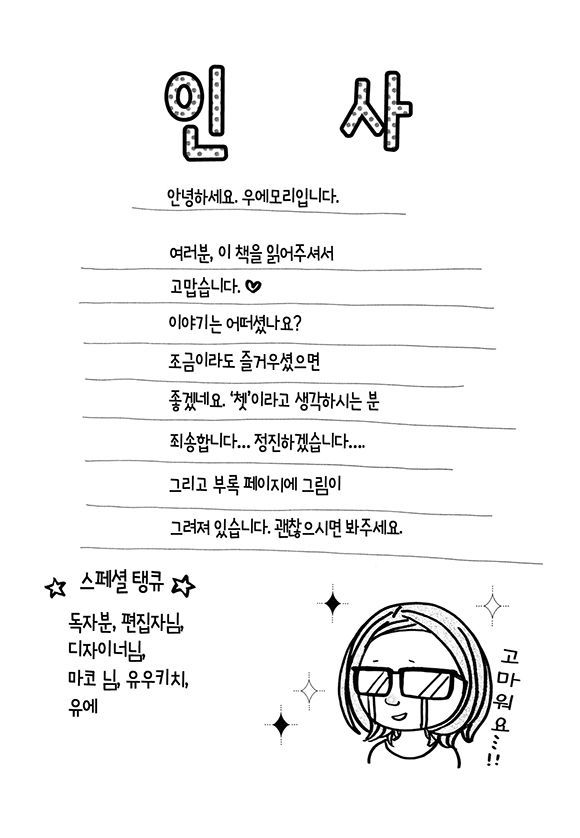 인 사
안녕하세요. 우에모리입니다.
여러분, 이 책을 읽어주셔서
고맙습니다. ♥
이야기는 어떠셨나요?
조금이라도 즐거우셨으면
좋겠네요. ‘쳇’이라고 생각하시는 분
죄송합니다... 정진하겠습니다....
그리고 부록 페이지에 그림이
그려져 있습니다. 괜찮으시면 봐주세요.
☆ 스페셜 탱큐 ☆
독자분, 편집자님,
디자이너님,
마코 님, 유우키치,
유에
고마워요...!!